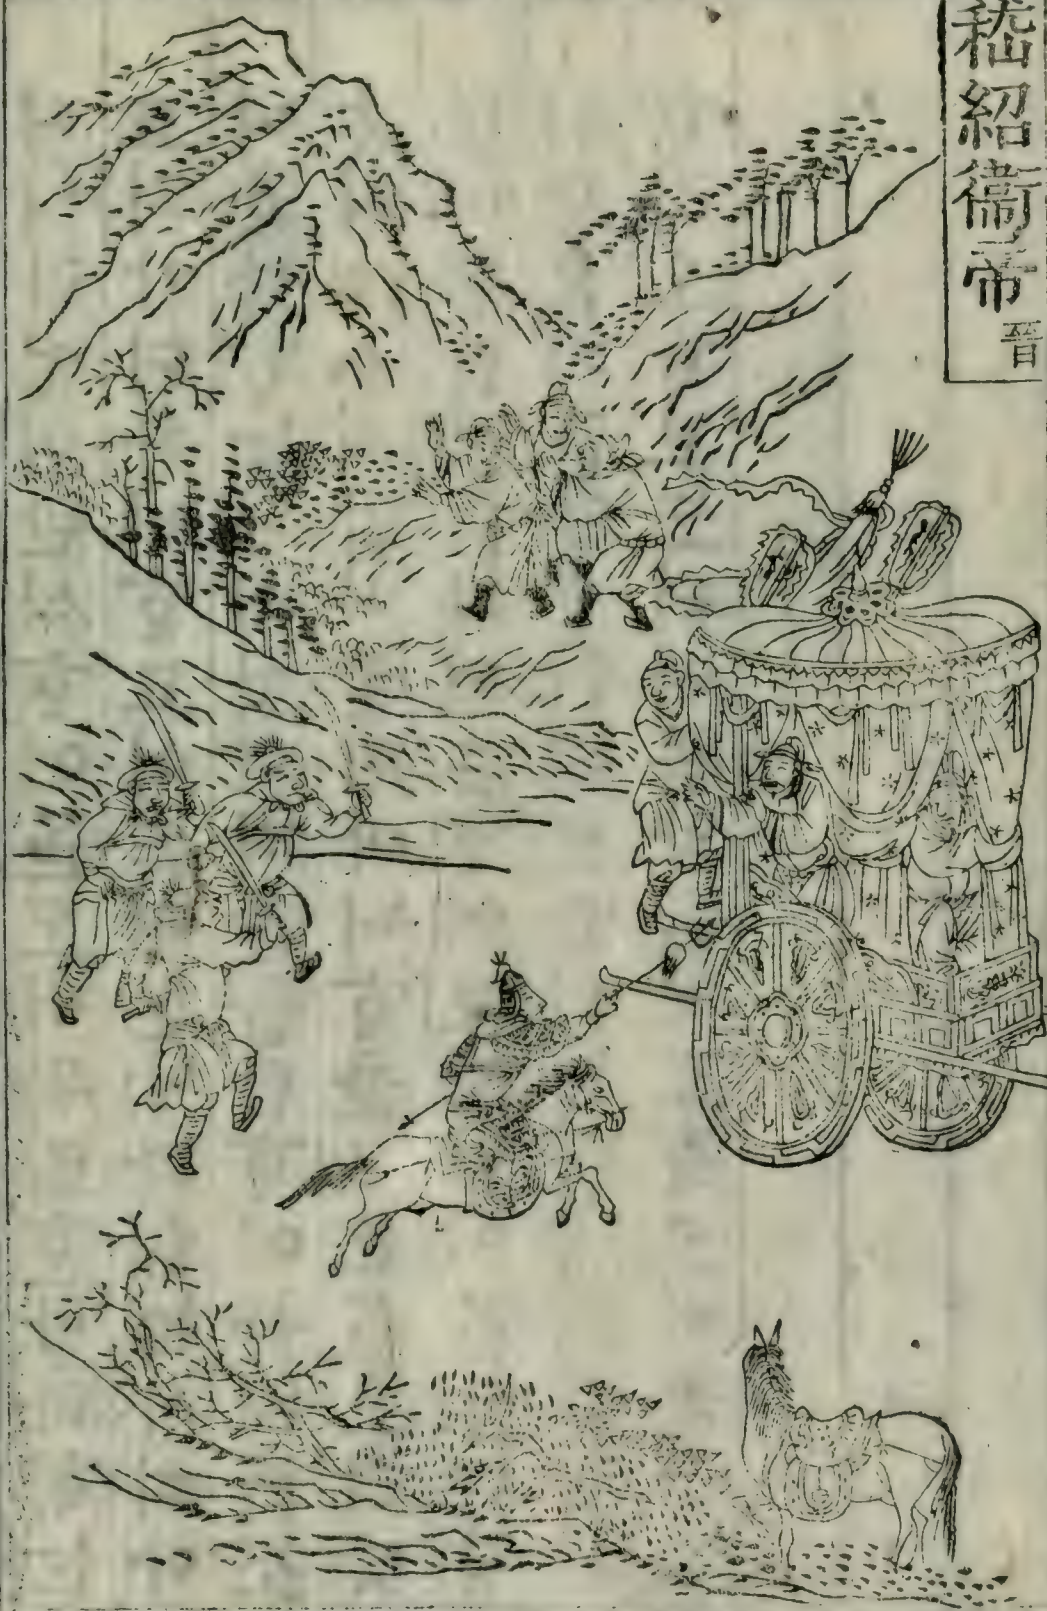 嵇紹衞帝 晉